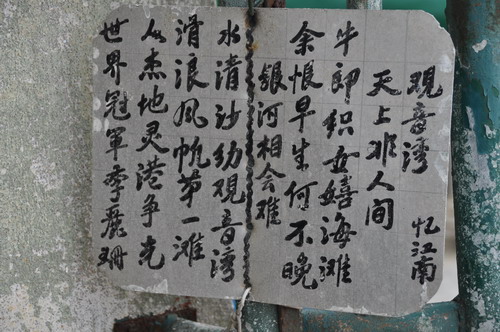 观音湾 忆江南
天上非人间
牛郎织女嬉海滩
余恨早生何不晚
银河相会难
水清沙幼观音湾
滑浪风帆第一滩
人杰地灵港争光
世界冠军李丽珊